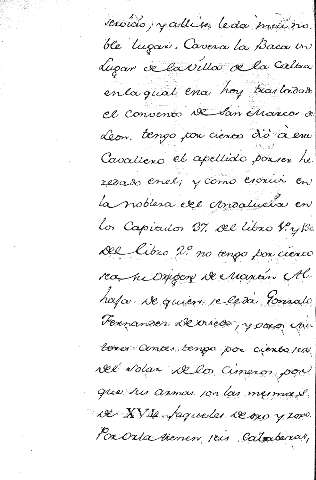 servido, y alli se le da mui no
ble lugar. Cavera la Baca un
Lugar de la Villa de la Calera
en la qual esta hoy trasladado
el convento de San Marcos de
Leon. tengo por cierto dio a este
Cavallero el apellido por ser he
redado en el; y como escrivi en
la nobleza del Andalucia en
los Capitulos 37. del libro 1º y
del libro 2º no tengo por cierto
sea su Origen de Martin Al
haja de quien se le da Gonzalo
Fernandez de Oviedo, y otros Au
tores antes tengo por cierto sea
del solar de los Cisneros, por
que sus armas son las mismas
de XV Jaqueles de oro y
Por Orla tienen seis Calaberas,